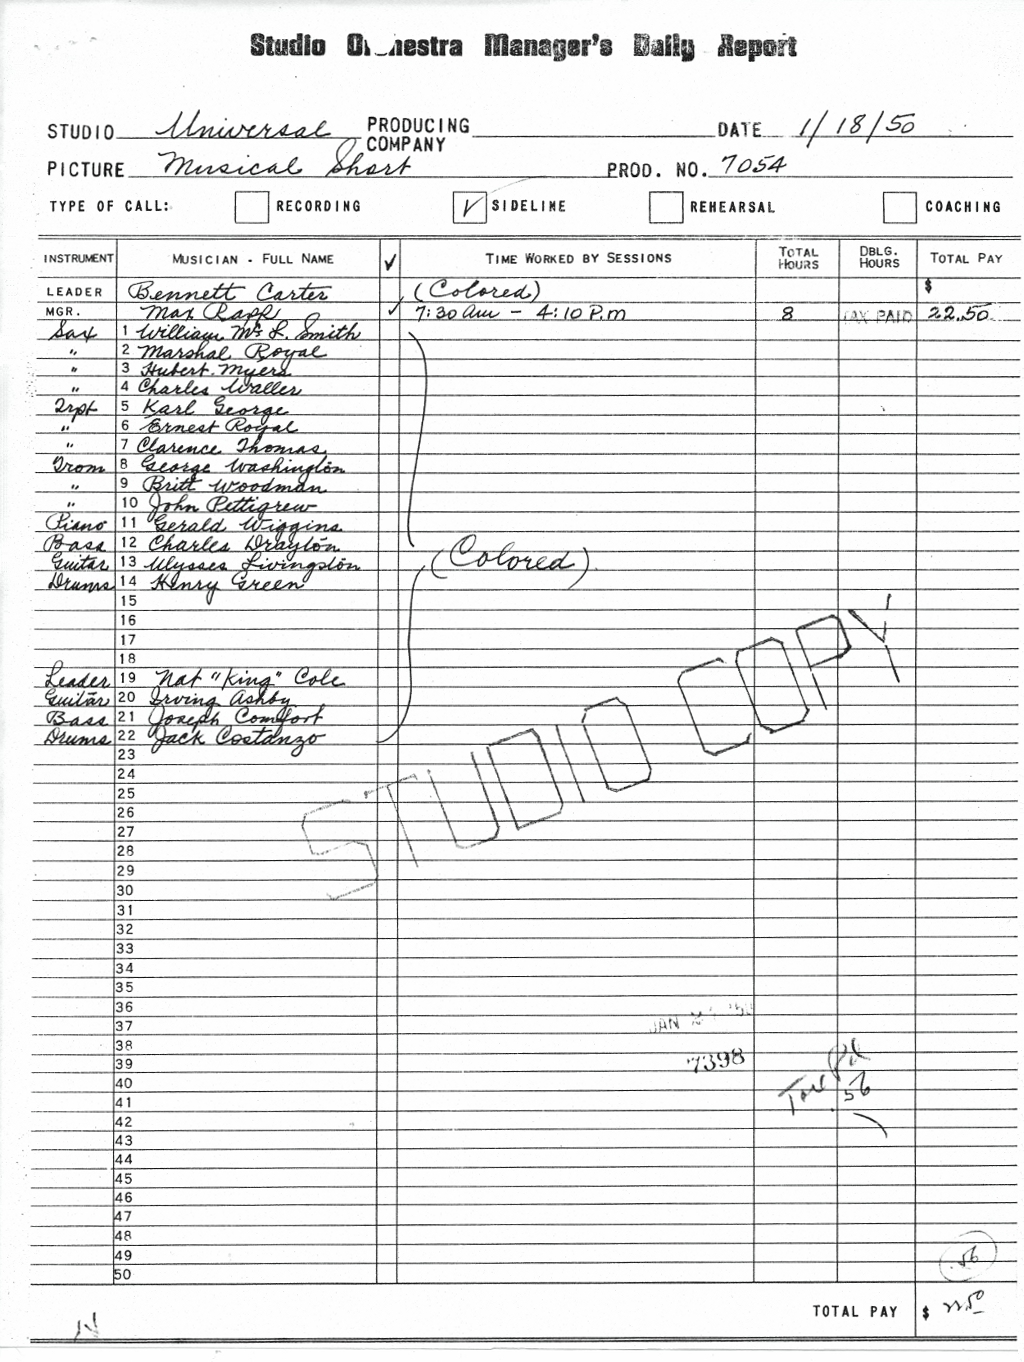 Studio Orchestra Manager's Daily Report
STUDIO Universal PRODUCING COMPANY DATE 1/18/50
PICTURE Musical Short PROD. NO. 7054
TYPE OF CALL: RECORDING √ SIDELINE REHEARSAL COACHING
INSTRUMENT MUSICIAN - FULL NAME √ TIME WORKED BY SESSIONS TOTAL HOURS DBLG. HOURS TOTAL PAY
LEADER Bennett Carter (Colored) $
MGR. Max Rapp √ 7:30 am - 4:10 P.m 8 TAX PAID 22.50
Sax 1 William Mc L. Smith
" 2 Marshal Royal
" 3 Hubert Myers
" 4 Charles Waller
Trpt 5 Karl George
" 6 Ernest Royal
" 7 Clarence Thomas
Trom 8 George Washington
" 9 Britt Woodman
" 10 John Pettigrew
Piano 11 Gerald Wiggins
Bass 12 Charles Drayton
Guitar 13 Ulysses Livingston (Colored)
Drums 14 Henry Green
15
16
17
18
Leader 19 Nat "King" Cole
Guitar 20 Irving Ashby
Bass 21 Joseph Comfort
Drums 22 Jack Costanzo
STUDIO COPY
23
24
25
26
27
28
29
30
31
32
33
34
35
36
37 JAN
38
39 7398
40
41 Tax Pd .56
42
43
44
45
46
47
48
49 .56
50
TOTAL PAY $ 22.50